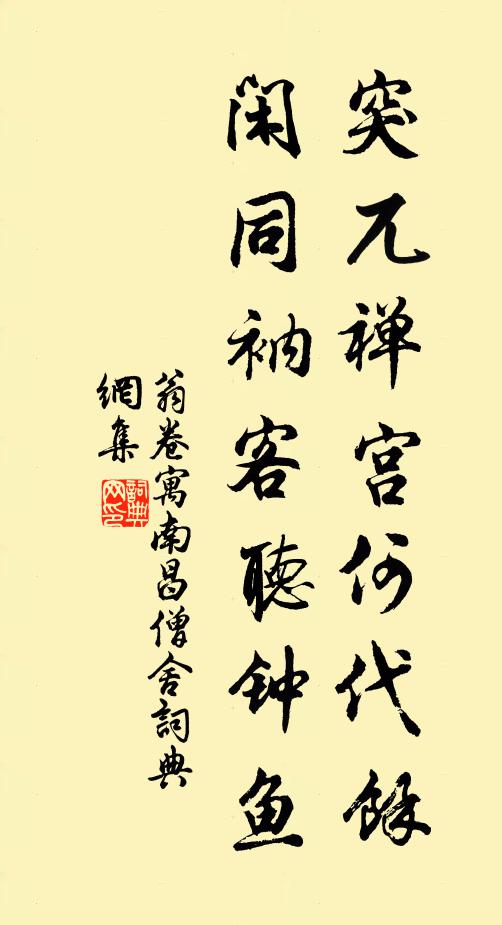 突兀禅宫何代馀
闲同衲客聽钟鱼
翁卷寓南昌僧舍詞典
網集
詞典
网印